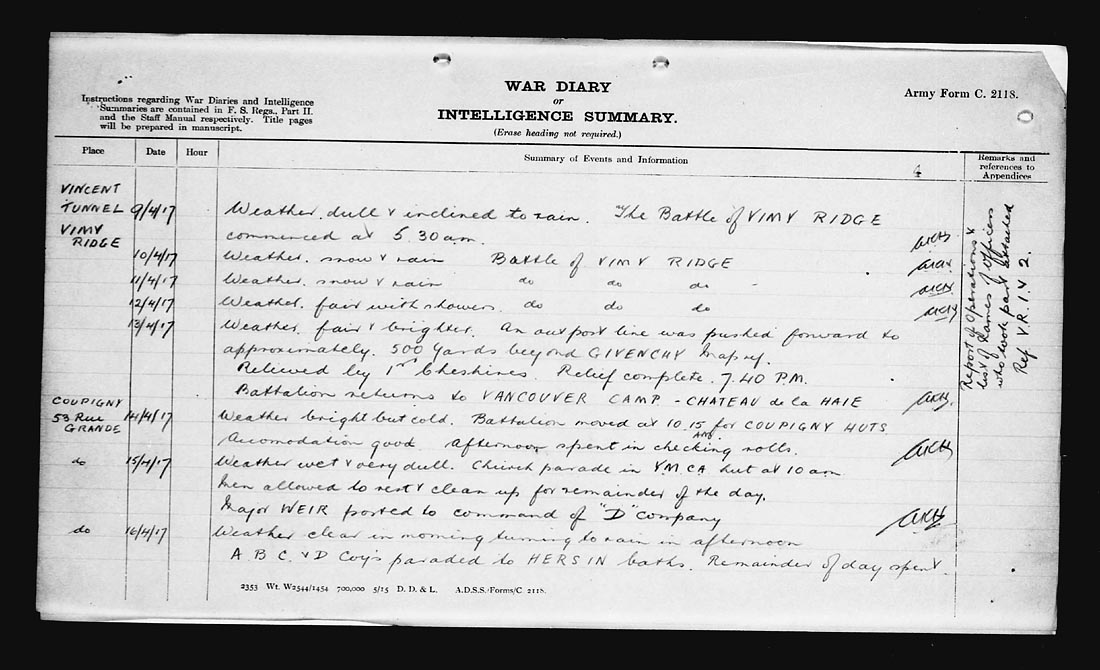 WAR DIARY
or
INTELLIGENCE SUMMARY.
(Erase heading not required.)
Army Form C. 2118.
Instructions regarding War Diaries and Intelligence
Summaries are contained in F. S. Regs., Part II.
and the Staff Manual respectively. Title pages
will be prepared in manuscript.
Place Date Hour Summary of Events and Information Remarks and references to Appendices
4
VINCENT
TUNNEL 9/4/17 Weather. dull & inclined to rain. The Battle of VIMY RIDGE
VIMY RIDGE commenced at 5.30 am.
10/4/17 Weather. snow & rain Battle of VIMY RIDGE
11/4/17 Weather. snow & rain do do do
12/4/17 Weather. fair with showers. do do do
13/4/17 Weather. fair & brighter. An outpost line was pushed forward to
approximately. 500 yards beyond GIVENCHY
Relieved by 1st Cheshires. Relief complete. 7.40 P.M.
Battalion returns to VANCOUVER CAMP - CHATEAU de la HAIE
COUPIGNY
53 Rue GRANDE 14/4/17 Weather bright but cold. Battalion moved at 10.15 AM for COUPIGNY HUTS
Accomodation good. Afternoon spent in checking rolls.
do 15/4/17 Weather wet & very dull. Church parade in Y.M.C.A. hut at 10 am
Men allowed to rest & clean up for remainder of the day.
Major WEIR posted to command of "D" Company
do 16/4/17 Weather clear in morning turning to rain in afternoon
A B C & D Coy's paraded to HERSIN baths. Remainder of day spent.
Report of Operations &
list of Names of Officers
who took part attached
Ref V.R. 1.4 2.
2353 Wt. W2544/1454 700,000 5/15 D. D. & L. A.D.S.S./Forms/C. 2118.